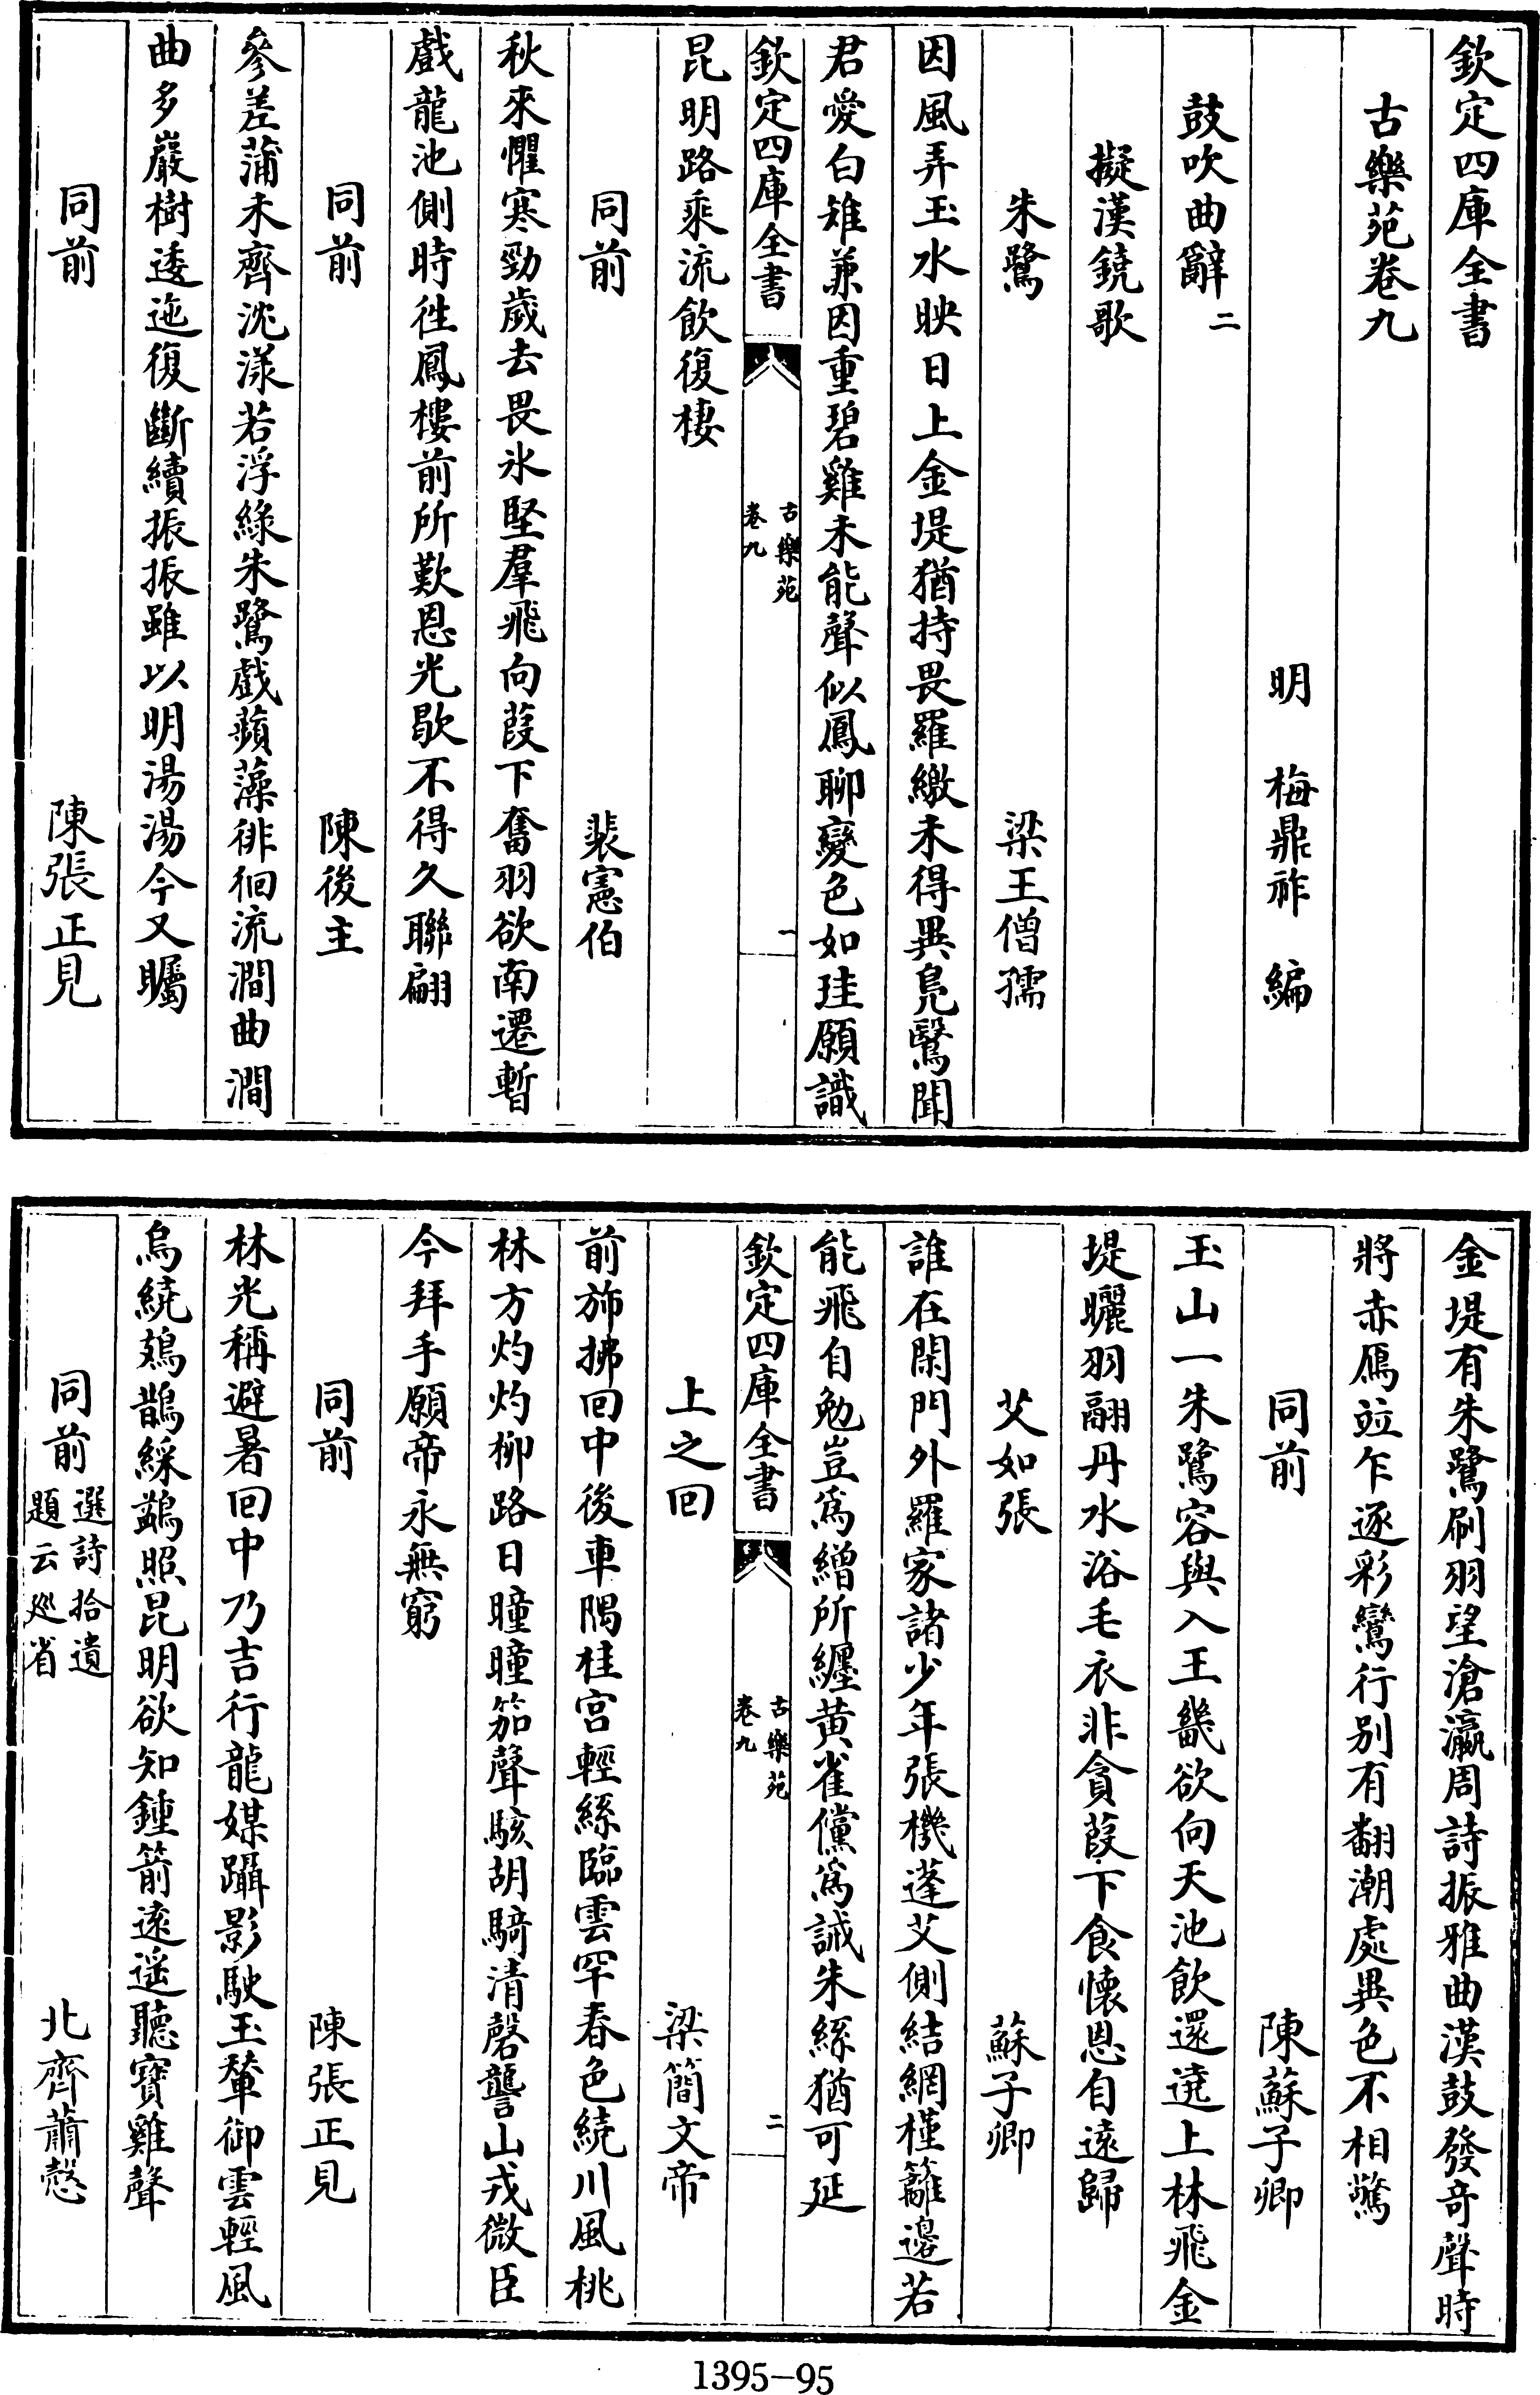 欽定四庫全書
古樂苑卷九
明　梅鼎祚　編
鼓吹曲辭二
擬漢鐃歌
朱鷺　梁王僧孺
因風弄玉水映日上金堤猶持畏羅繳未得異鳧鷖聞
君愛白雉兼因重碧雞未能聲似鳳聊變色如珪願識
欽定四庫全書　古樂苑卷九　一
昆明路乘流飲復棲
同前　裴憲伯
秋來懼寒勁歲去畏氷堅羣飛向葭下奮羽欲南遷暫
戲龍池側時徃鳳樓前所歎恩光歇不得久聯翩
同前　陳後主
參差蒲未齊沈漾若浮綠朱鷺戲蘋藻徘徊流澗曲澗
曲多巖樹逶迤復斷續振振雖以明湯湯今又矚
同前　陳張正見
金堤有朱鷺刷羽望滄瀛周詩振雅曲漢鼓發奇聲時
將赤鴈竝乍逐彩鸞行别有翻潮處異色不相驚
同前　陳蘇子卿
玉山一朱鷺容與入王畿欲向天池飲還遶上林飛金
堤曬羽翮丹水浴毛衣非貪葭下食懷恩自遠歸
艾如張　蘇子卿
誰在閑門外羅家諸少年張機蓬艾側結網槿籬邊若
能飛自勉豈爲繒所纒黄雀儻爲誡朱絲猶可延
欽定四庫全書　古樂苑卷九　二
上之回　梁簡文帝
前斾拂回中後車隅桂宮輕絲臨雲罕春色繞川風桃
林方灼灼栁路日瞳瞳笳聲駭胡騎清磬讋山戎微臣
今拜手願帝永無窮
同前　陳張正見
林光稱避暑回中乃吉行龍媒躡影駛玉輦御雲輕風
烏繞鳷鵲綵鷁照昆明欲知鍾箭遠遥聽寶雞聲
同前　選詩拾遺題云廵省　北齊蕭慤
1395-95